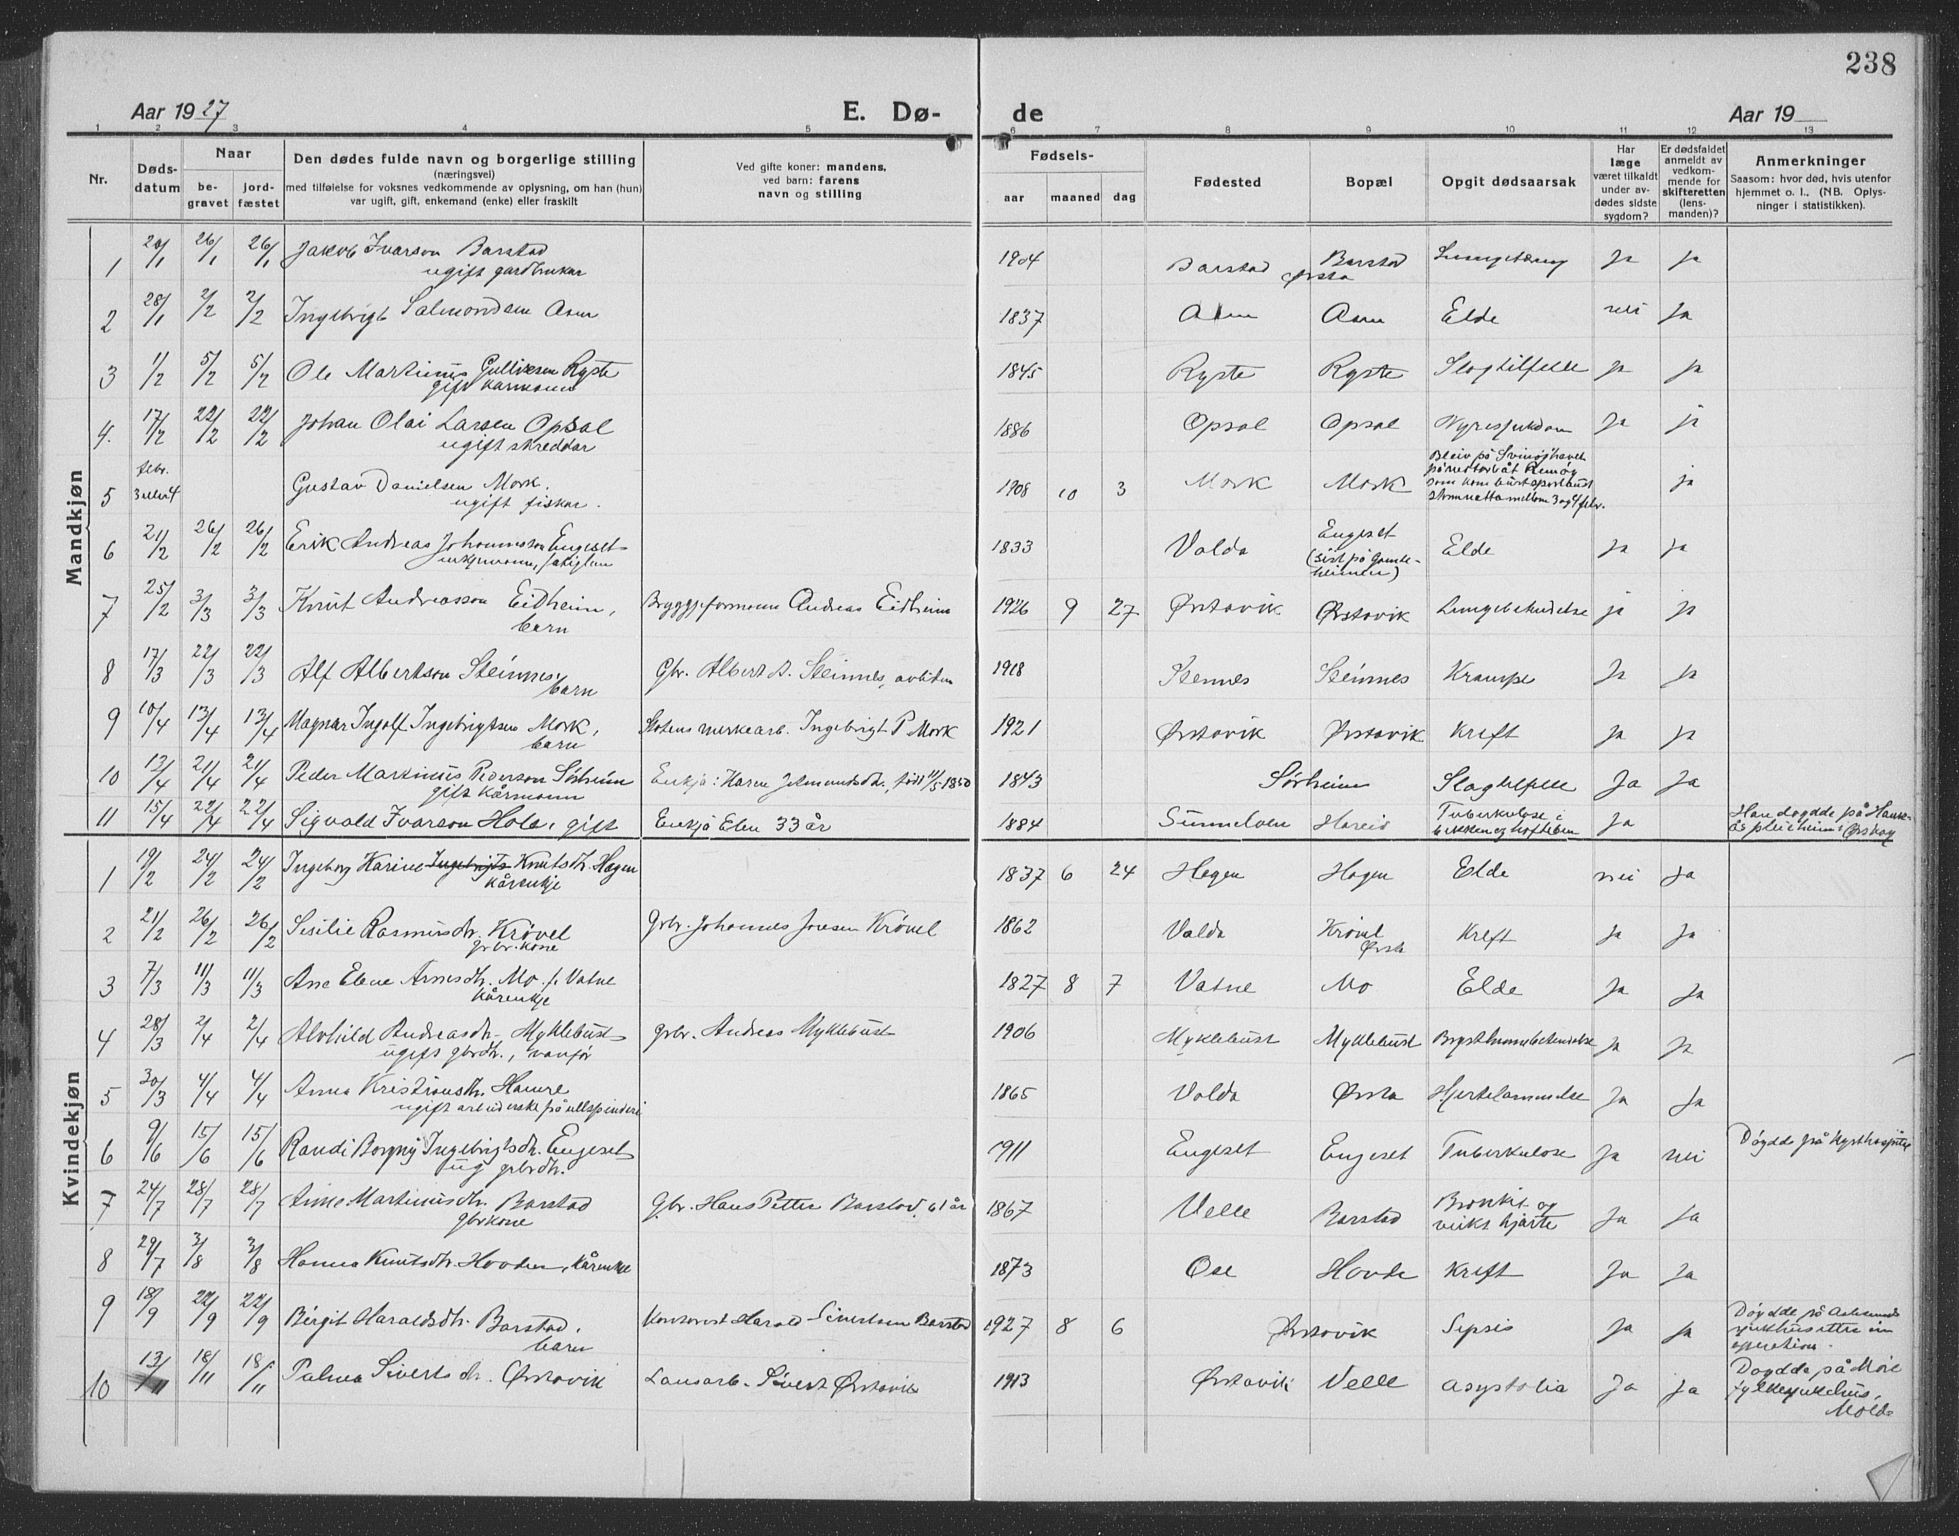 238
Aar 1927 E. Dø- de Aar 19
1 2 3 4 5 6 7 8 9 10 11 12 13
Nr. Døds-datum Naar be-gravet jord-fæstet Den dødes fulde navn og borgerlige stilling (næringsvei) med tilføielse for voksnes vedkommende av oplysning, om han (hun) var ugift, gift, enkemand (enke) eller fraskilt Ved gifte koner: mandens, ved barn: farens navn og stilling Fødsels- aar maaned dag Fødested Bopæl Opgit dødsaarsak Har læge været tilkaldt under av-dødes sidste sygdom? Er dødsfaldet anmeldt av vedkom-mende for skifteretten (lens-manden)? Anmerkninger Saasom: hvor død, hvis utenfor hjemmet o. l., (NB. Oplys-ninger i statistikken).
Mandkjøn
1 20/1 26/1 26/1 Jakob Ivarson Barstad 1904 Barstad Barstad Ja ja
ugift gardbrukar Ørsta
2 28/1 2/2 2/2 Ingebrigt Salmondsen Aam 1837 Aam Aam Elde nei Ja
3 1/2 5/2 5/2 Ole Martinus Gulliksen Ryste 1845 Ryste Ryste Slagtilfelle ja ja
gift kårmann
4. 17/2 22/2 22/2 Johan Olai Larsen Opsal 1886 Opsal Opsal Nyresjukdom Ja ja
ugift skreddar
5 febr. 3 eller 4 Gustav Danielsen Mork. 1908 10 3 Mork Mork Bleiv på Svinøyhavet
ugift fiskar. som kom burt sporlaust ja
mellom 3 og 4 febr.
6 21/2 26/2 26/2 Erik Andreas Johannesson Engeset 1833 Volda Engeset Elde ja Ja
enkjemann, fatiglem (sist på Gamle-heimen)
7 25/2 3/3 3/3 Knut Andreasson Eidheim, Bryggjeformann Andreas Eidheim 1926 9 27 Ørstavik Ørstavik Lungebetendelse ja ja
barn
8 17/3 22/3 22/3 Alf Albertson Steinnes, Gbr. Albert A. Steinnes, avliden 1918 Steinnes Steinnes Krampe Ja ja
barn
9 10/4 13/4 13/4 Magnar Ingolf Ingebrigtsen Mork, Statens merkearb. Ingebrigt P Mork 1921 Ørstavik Ørstavik Kreft Ja ja
barn
10 13/4 21/4 21/4 Peder Martinus Pederson Sørheim Enkja: Karen Jetmundsdtr., født 11/5 1850 1843 Sørheim Slagtilfelle Ja Ja
gift kårmann
11 15/4 22/4 22/4 Sigvald Ivarson Hole, gift Enkja Elen 33 år 1884 Sunnelven Hareid Tuberkulose i Ja Han døydde på Hauk-
bekken og hofteben ås pleieheim i Ørskog
Kvindekjøn
1 19/2 24/2 24/2 Ingeborg Karine Ingebrigts Knutsdtr. Hagen 1837 6 24 Hagen Hagen Elde nei Ja
kårenkje
2 21/2 26/2 26/2 Sisilie Rasmusdtr. Krøvel Grbr. Johannes Jonsen Krøvel 1862 Volda Krøvel Kreft Ja Ja
grbr. kone Ørsta
3 7/3 11/3 11/3 Ane Elene Arnesdtr. Mo f. Vatne 1827 8 7 Vatne Mo Elde Ja Ja
kårenkje
4 28/3 2/4 2/4 Alvhild Andreasdtr. Myklebust Grbr. Andreas Myklebust 1906 Myklebust Myklebust Brysthinnebetendelse Ja Ja
ugift gbrdtr., vanfør
5 30/3 4/4 4/4 Anna Kristiansdtr. Hamre 1865 Volda Ørsta Hjertelammelse Ja Ja
ugift arbeiderske på ullspinderi
6 9/6 15/6 15/6 Randi Borgny Ingebrigtsdtr. Engeset 1911 Engeset Engeset Tuberkulose Ja nei Døydde på Kysthospitlet
ug grbrdtr.
7 24/7 28/7 28/7 Anne Martinusdtr. Barstad Gbr. Hans Petter Barstad, 61 år 1867 Velle Barstad Bronkit og Ja Ja
gbrkone veikt hjarte
8 29/7 3/8 3/8 Hanna Knutsdtr. Hovden, kårenkje 1873 Ose Hovde Kreft Ja Ja
9 18/9 22/9 22/9 Birgit Haraldsdtr. Barstad, Kontorist Harald Sivertsen Barstad 1927 8 6 Ørstavik Sepsis Ja Ja Døydde på Aalesunds
barn sjukehus etter ein
operation.
10 13/11 18/11 18/11 Palma Sivertsdtr. Ørstavik Lausarb. Sivert Ørstavik 1913 Ørstavik Velle Asystolia Ja Ja Døydde på Møre
fylkesjukehus,
Molde